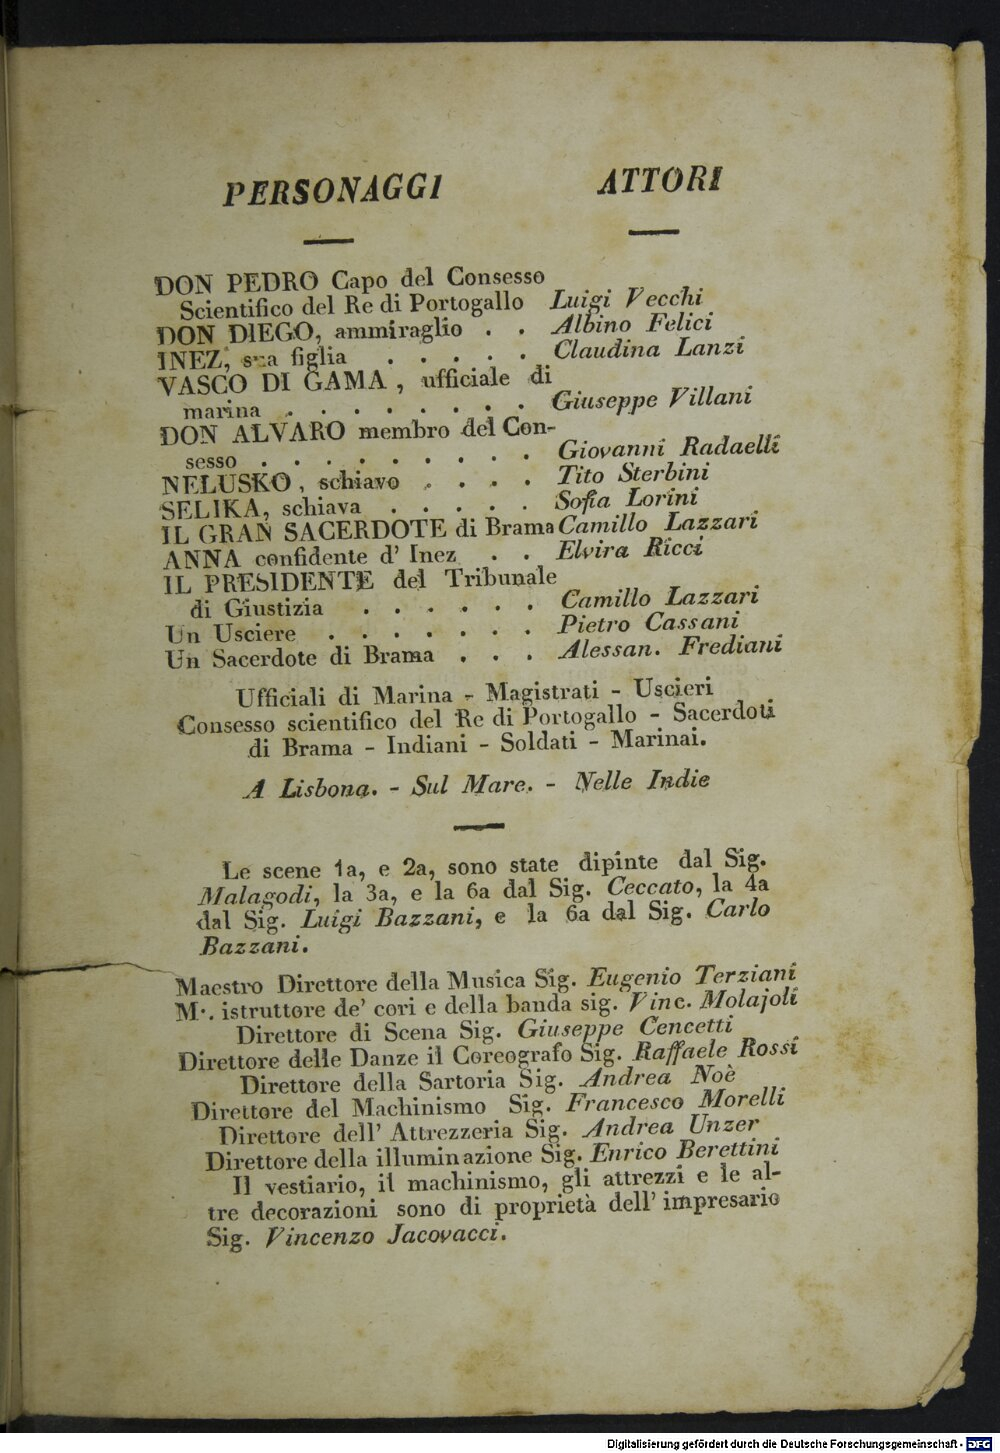 PERSONAGGI ATTORI
DON PEDRO Capo del Consesso
Scientifico del Re di Portogallo Luigi Vecchi
DON DIEGO, ammiraglio . . Albino Felici
INEZ, sua figlia . . . . . Claudina Lanzi
VASCO DI GAMA, ufficiale di
marina . . . . . . . . Giuseppe Villani
DON ALVARO membro del Con-
sesso . . . . . . . . . Giovanni Radaelli
NELUSKO, schiavo . . . . Tito Sterbini
SELIKA, schiava . . . . . Sofia Lorini
IL GRAN SACERDOTE di Brama Camillo Lazzari
ANNA confidente d' Inez . . Elvira Ricci
IL PRESIDENTE del Tribunale
di Giustizia . . . . . . Camillo Lazzari
Un Usciere . . . . . . . Pietro Cassani
Un Sacerdote di Brama . . . Alessan. Frediani
Ufficiali di Marina - Magistrati - Uscieri
Consesso scientifico del Re di Portogallo - Sacerdoti
di Brama - Indiani - Soldati - Marinai.
A Lisbona. - Sul Mare. - Nelle Indie
Le scene 1a, e 2a, sono state dipinte dal Sig.
Malagodi, la 3a, e la 6a dal Sig. Ceccato, la 4a
dal Sig. Luigi Bazzani, e la 6a dal Sig. Carlo
Bazzani.
Maestro Direttore della Musica Sig. Eugenio Terziani
M·. istruttore de' cori e della banda sig. Vinc. Molajoli
Direttore di Scena Sig. Giuseppe Cencetti
Direttore delle Danze il Coreografo Sig. Raffaele Rossi
Direttore della Sartoria Sig. Andrea Noè
Direttore del Machinismo Sig. Francesco Morelli
Direttore dell' Attrezzeria Sig. Andrea Unzer
Direttore della illuminazione Sig. Enrico Berettini
Il vestiario, il machinismo, gli attrezzi e le al-
tre decorazioni sono di proprietà dell' impresario
Sig. Vincenzo Jacovacci.
Digitalisierung gefördert durch die Deutsche Forschungsgemeinschaft - DFG